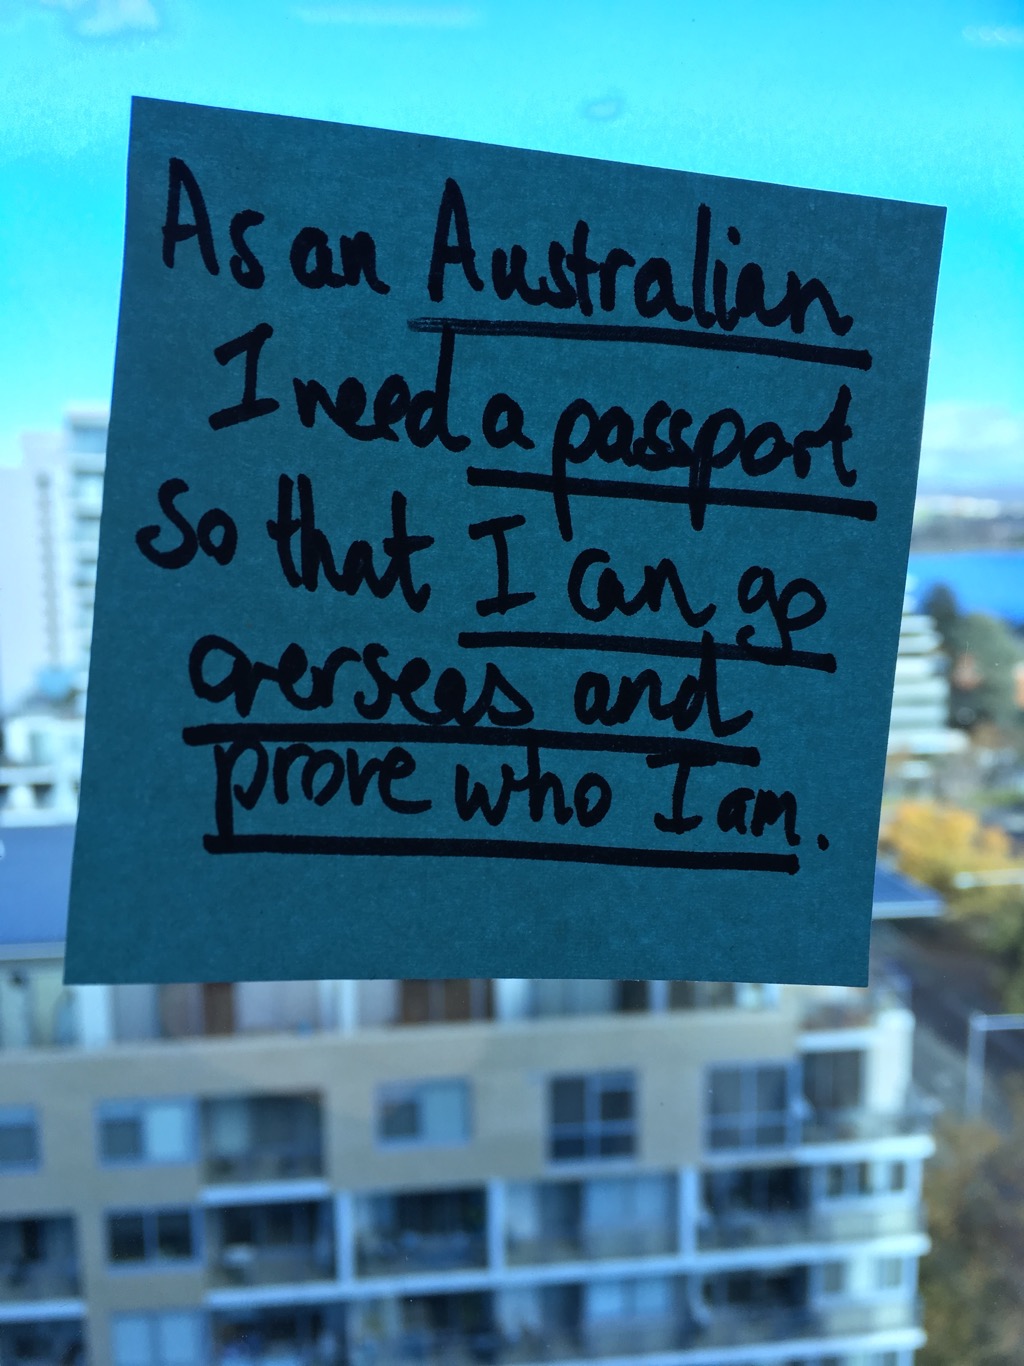 As an Australian
I need a passport
so that I can go
overseas and
prove who I am.